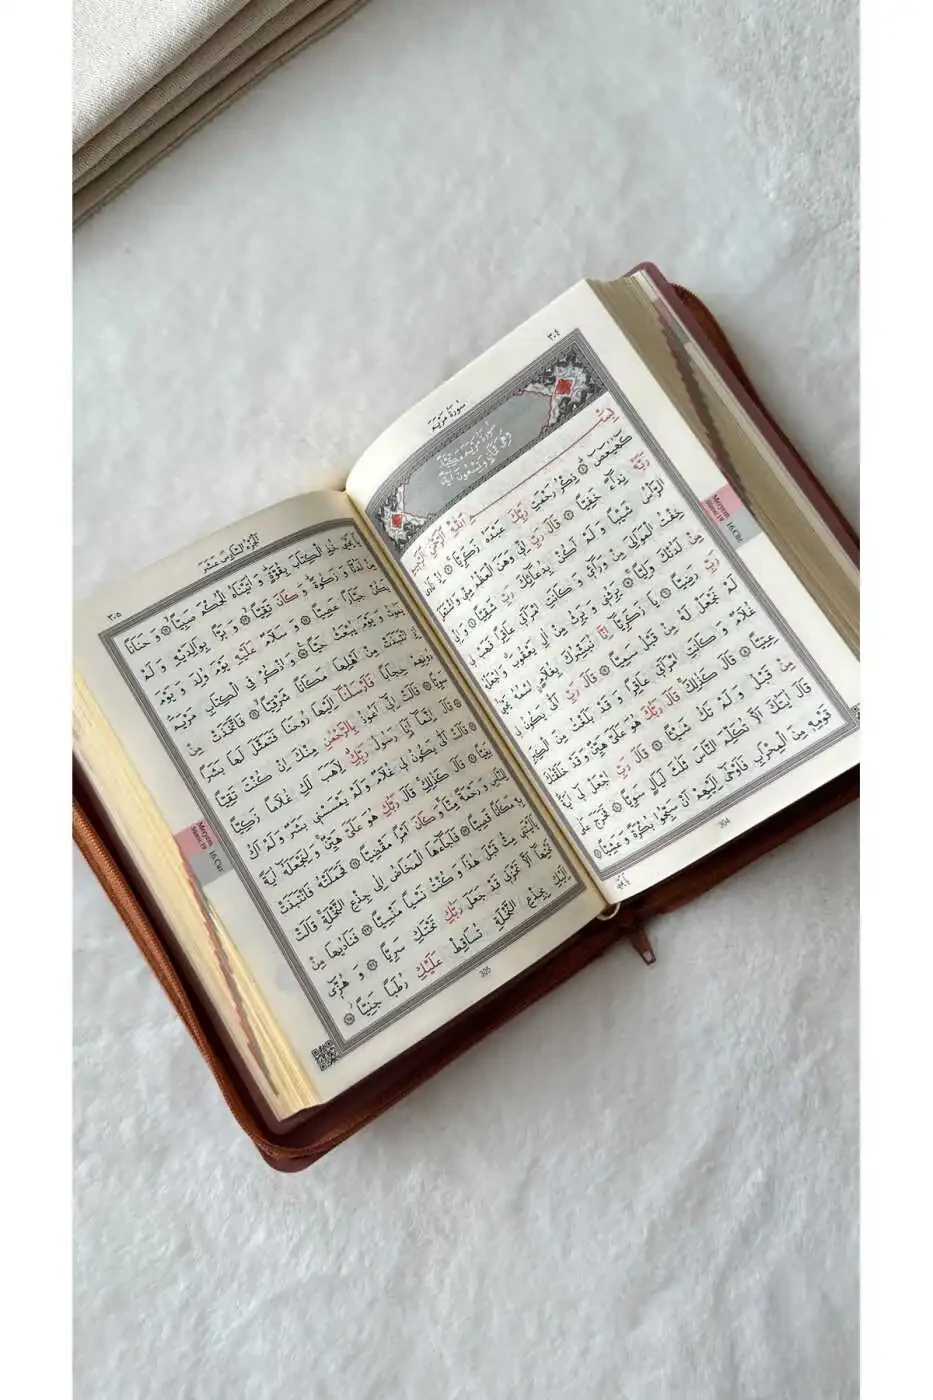 ٣٠٤
سُورَةُ مَرْيَمَ
سُورَةُ مَرْيَمَ مَكِّيَّةٌ
وَهِىَ ثَمَانٍ وَتِسْعُونَ اٰيَةً
بِسْمِ اللّٰهِ الرَّحْمٰنِ الرَّحِيمِ
كٓهٰيٰعٓصٓ ۝ ذِكْرُ رَحْمَتِ رَبِّكَ عَبْدَهُ زَكَرِيَّا ۝ اِذْ نَادٰى
رَبَّهُ نِدَٓاءً خَفِيًّا ۝ قَالَ رَبِّ اِنِّى وَهَنَ الْعَظْمُ مِنِّى وَاشْتَعَلَ
الرَّأْسُ شَيْبًا وَ لَمْ اَكُنْ بِدُعَٓائِكَ رَبِّ شَقِيًّا ۝ وَ اِنِّى
خِفْتُ الْمَوَالِىَ مِنْ وَرَٓاءِى وَ كَانَتِ امْرَاَتِى عَاقِرًا فَهَبْ لِى
مِنْ لَدُنْكَ وَلِيًّا ۝ يَرِثُنِى وَ يَرِثُ مِنْ اٰلِ يَعْقُوبَ وَ اجْعَلْهُ
رَبِّ رَضِيًّا ۝ يَا زَكَرِيَّٓا اِنَّا نُبَشِّرُكَ بِغُلَامٍ اسْمُهُ يَحْيٰى
لَمْ نَجْعَلْ لَهُ مِنْ قَبْلُ سَمِيًّا ۝ قَالَ رَبِّ اَنّٰى يَكُونُ لِى
غُلَامٌ وَ كَانَتِ امْرَاَتِى عَاقِرًا وَ قَدْ بَلَغْتُ مِنَ الْكِبَرِ
عِتِيًّا ۝ قَالَ كَذٰلِكَ قَالَ رَبُّكَ هُوَ عَلَىَّ هَيِّنٌ وَ قَدْ خَلَقْتُكَ
مِنْ قَبْلُ وَ لَمْ تَكُ شَيْـًٔا ۝ قَالَ رَبِّ اجْعَلْ لِٓى اٰيَةً
قَالَ اٰيَتُكَ اَلَّا تُكَلِّمَ النَّاسَ ثَلٰثَ لَيَالٍ سَوِيًّا ۝ فَخَرَجَ عَلٰى
قَوْمِهِ مِنَ الْمِحْرَابِ فَاَوْحٰٓى اِلَيْهِمْ اَنْ سَبِّحُوا بُكْرَةً وَ عَشِيًّا ۝
304
Meryem
Sûresi,19
16.Cüz
اَلْجُزْءُ السَّادِسَ عَشَرَ
٣٠٥
يَا يَحْيٰى خُذِ الْكِتَابَ بِقُوَّةٍ وَ اٰتَيْنَاهُ الْحُكْمَ صَبِيًّا ۝ وَ حَنَانًا
مِنْ لَدُنَّا وَ زَكٰوةً وَ كَانَ تَقِيًّا ۝ وَ بَرًّا بِوَالِدَيْهِ وَ لَمْ
يَكُنْ جَبَّارًا عَصِيًّا ۝ وَ سَلَامٌ عَلَيْهِ يَوْمَ وُلِدَ وَ يَوْمَ
يَمُوتُ وَ يَوْمَ يُبْعَثُ حَيًّا ۝ وَ اذْكُرْ فِى الْكِتَابِ مَرْيَمَ
اِذِ انْتَبَذَتْ مِنْ اَهْلِهَا مَكَانًا شَرْقِيًّا ۝ فَاتَّخَذَتْ مِنْ
دُونِهِمْ حِجَابًا فَاَرْسَلْنَٓا اِلَيْهَا رُوحَنَا فَتَمَثَّلَ لَهَا بَشَرًا
سَوِيًّا ۝ قَالَتْ اِنِّٓى اَعُوذُ بِالرَّحْمٰنِ مِنْكَ اِنْ كُنْتَ تَقِيًّا
۝ قَالَ اِنَّمَٓا اَنَا رَسُولُ رَبِّكِ لِاَهَبَ لَكِ غُلَامًا زَكِيًّا
۝ قَالَتْ اَنّٰى يَكُونُ لِى غُلَامٌ وَ لَمْ يَمْسَسْنِى بَشَرٌ وَ لَمْ اَكُ
بَغِيًّا ۝ قَالَ كَذٰلِكِ قَالَ رَبُّكِ هُوَ عَلَىَّ هَيِّنٌ وَ لِنَجْعَلَهُٓ اٰيَةً
لِلنَّاسِ وَ رَحْمَةً مِنَّا وَ كَانَ اَمْرًا مَقْضِيًّا ۝ فَحَمَلَتْهُ فَانْتَبَذَتْ
بِهِ مَكَانًا قَصِيًّا ۝ فَاَجَٓاءَهَا الْمَخَاضُ اِلٰى جِذْعِ النَّخْلَةِ قَالَتْ
يَا لَيْتَنِى مِتُّ قَبْلَ هٰذَا وَ كُنْتُ نَسْيًا مَنْسِيًّا ۝ فَنَادٰيهَا مِنْ
تَحْتِهَٓا اَلَّا تَحْزَنِى قَدْ جَعَلَ رَبُّكِ تَحْتَكِ سَرِيًّا ۝ وَ هُزِّٓى
اِلَيْكِ بِجِذْعِ النَّخْلَةِ تُسَاقِطْ عَلَيْكِ رُطَبًا جَنِيًّا ۝
305
Meryem
Sûresi,19
16.Cüz